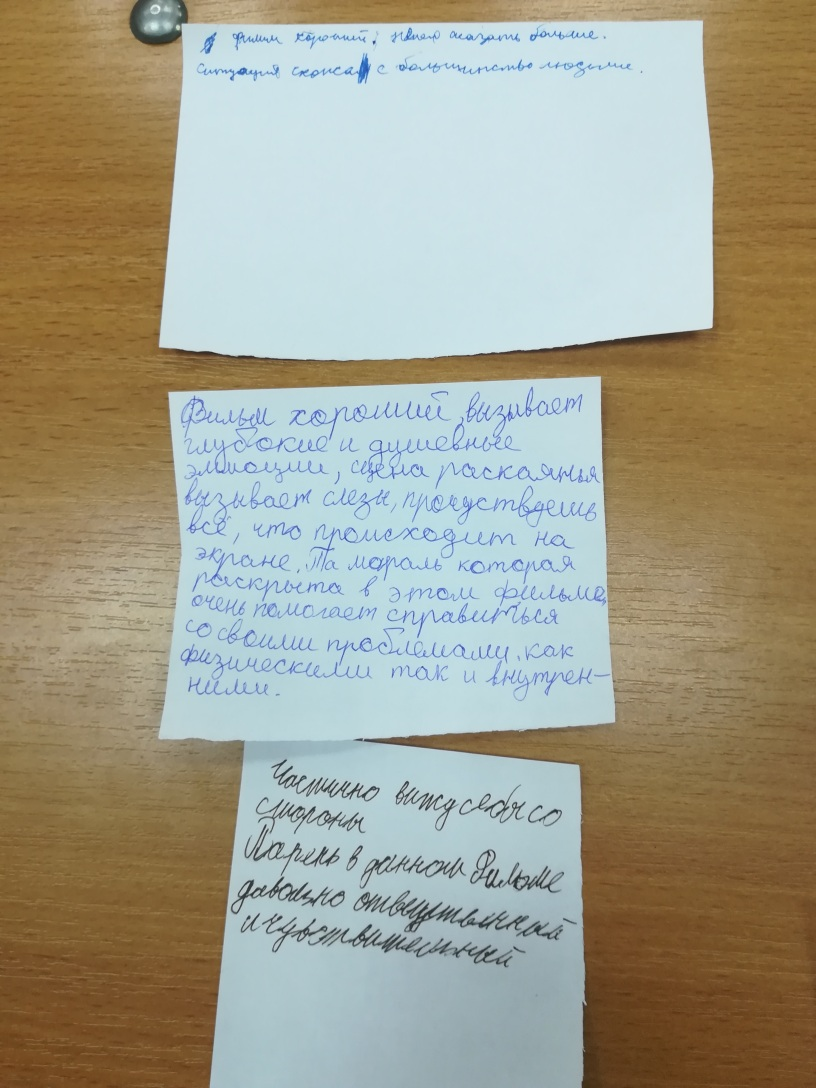 фильм хороший; нечего сказать больше.
Ситуация схожа с большинство людьми.
Фильм хороший, вызывает
глубокие и душевные
эмиоции, сцена раскаянья
вызывает слезы, прочуствуешь
всё, что происходит на
экране. Та мораль которая
раскрыта в этом фильме,
очень помогает справиться
со своими проблемами, как
физическими так и внутрен-
ними.
Частично вижу себя со
стороны
Парень в данном Фильме
давольно ответственный
и чувствительный